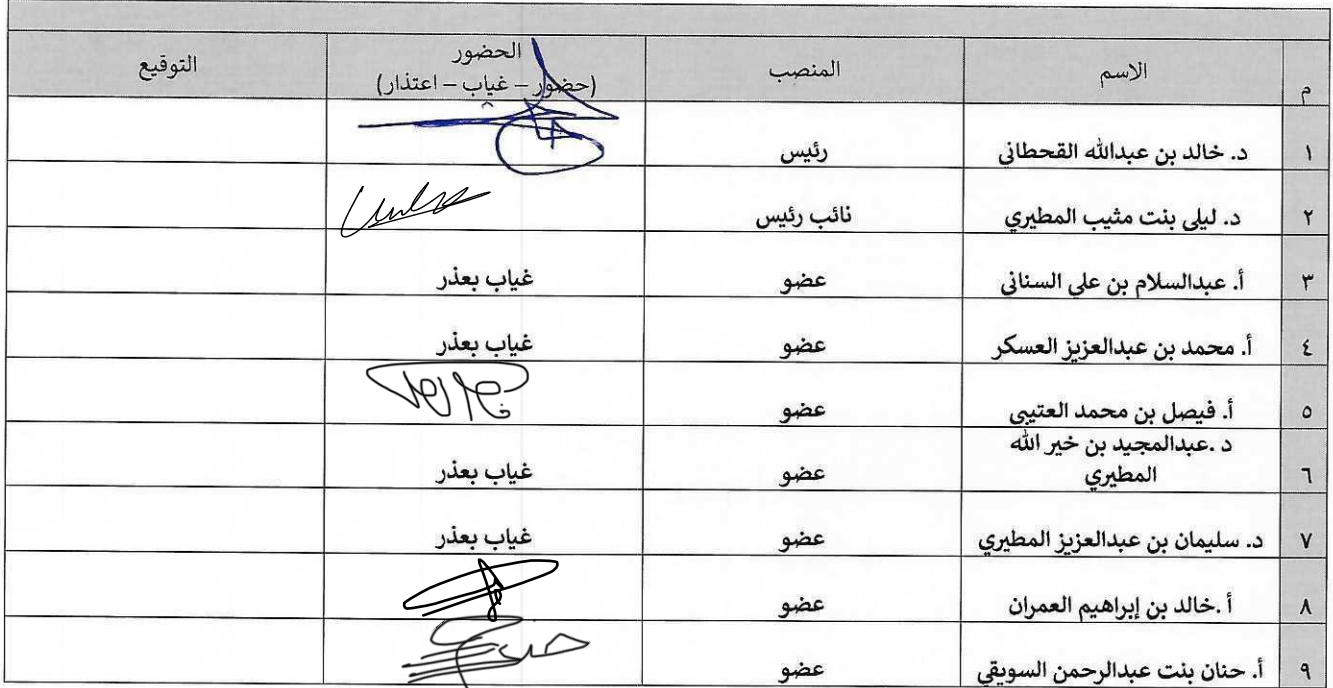 م الاسم المنصب الحضور التوقيع
(حضور – غياب – اعتذار)
١ د. خالد بن عبدالله القحطاني رئيس
٢ د. ليلى بنت مثيب المطيري نائب رئيس
٣ أ. عبدالسلام بن علي السناني عضو غياب بعذر
٤ أ. محمد بن عبدالعزيز العسكر عضو غياب بعذر
٥ أ. فيصل بن محمد العتيبي عضو
د .عبدالمجيد بن خير الله
٦ المطيري عضو غياب بعذر
٧ د. سليمان بن عبدالعزيز المطيري عضو غياب بعذر
٨ أ .خالد بن إبراهيم العمران عضو
٩ أ. حنان بنت عبدالرحمن السويقي عضو